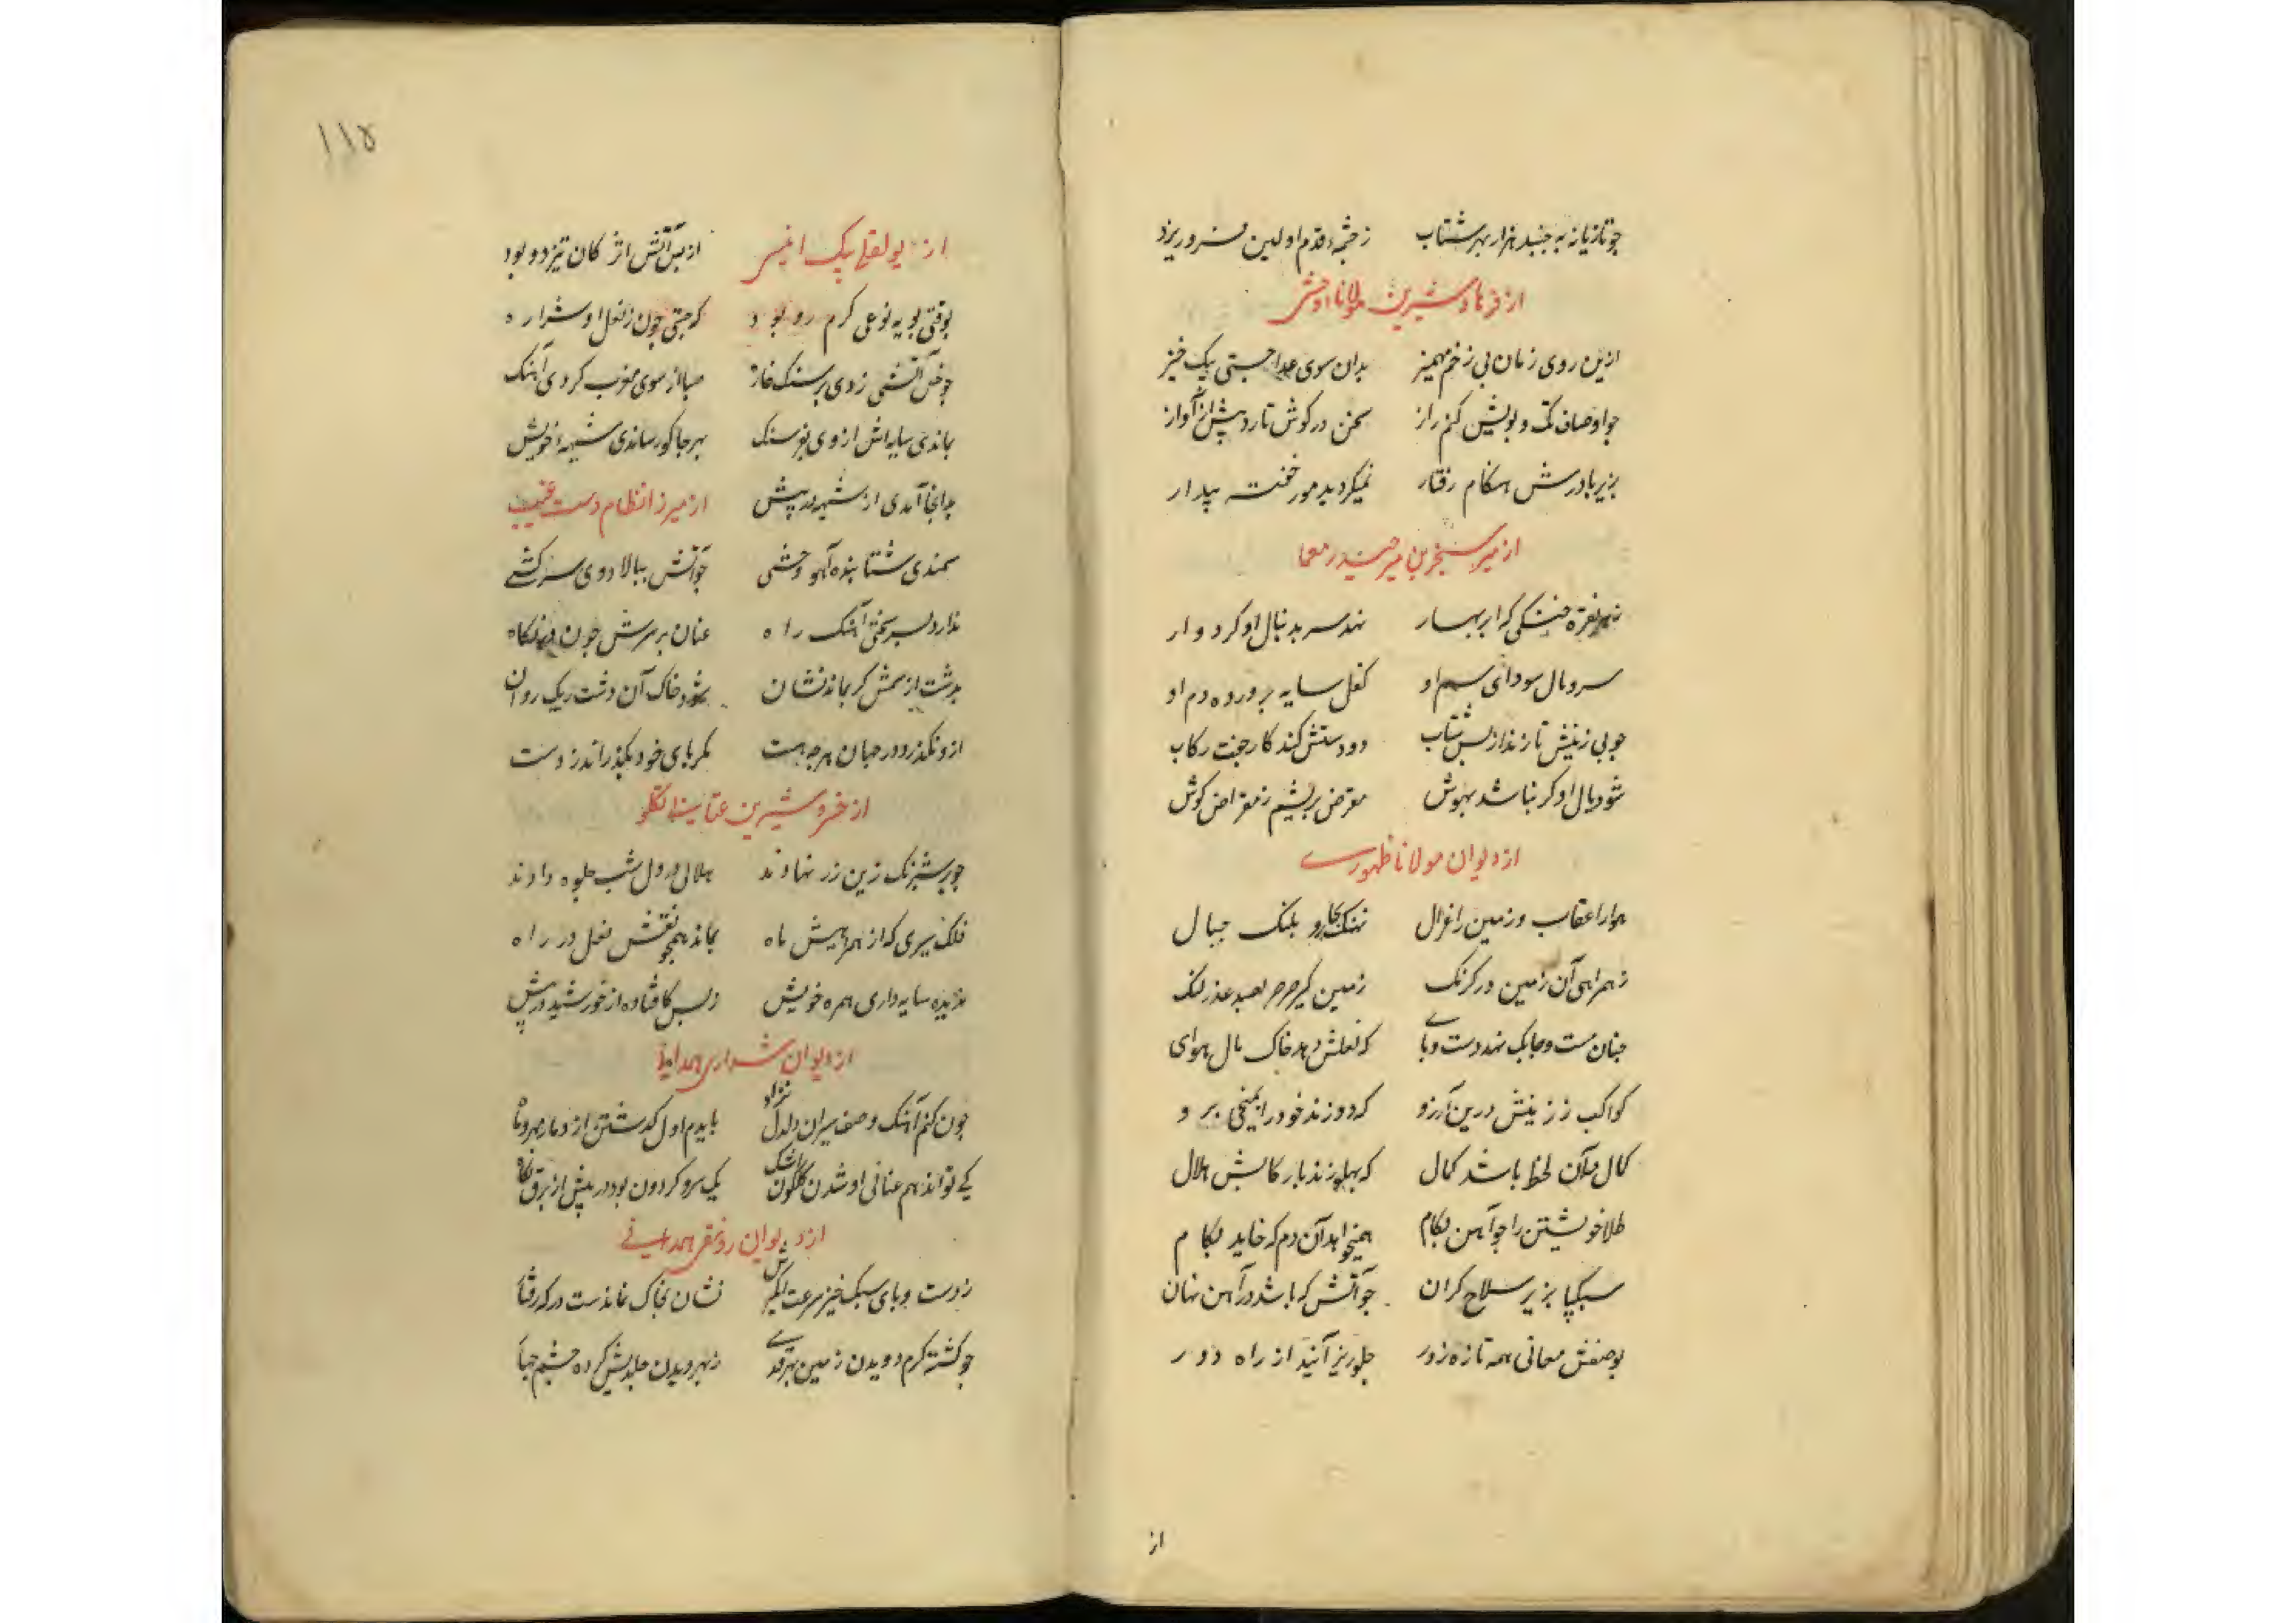 چو تازیانه به جنبد هزار بهر شتاب زچشمه قدم اولین فرو ریزد
از فرهاد شیرین مولانا وحشی
ازین روی زمان بی زخم مهمیز بدان سوی جستی یک خیز
چو اوصاف تک و پویش کنم راز سخن در کوش تازد پیش از آواز
بزیر پا درش هنکام رفتار نمیکردید مور خفته بیدار
از میر سنجر بن میر حیدر معما
نقره خنکی که ابر بهار نهد سر بدنبال او کردوار
سر و مال سودای سم او کفل سایه پرورده دم او
چو پی زینش تازند از بس شتاب دو دستش کند کار جفت رکاب
شود بال او کر نباشد بهوش مقرض بریشم ز مقراض کوش
از دیوان مولانا ظهوری
هوا را عقاب و زمین را غزال نهنک بحار و پلنک جبال
ز همراهی آن زمین در کرنک زمین کیر صرصر بصد عذر لنک
چنان چست و چابک نهد دست و پای که نعلش دهد خاک مال هوای
کواکب ز زینش درین آرزو که دوزند خود را بر و
کمال آن لحظ باشد کمال که پهلو زند با رکابش هلال
طلا خویشتن را چو آهن بکام همیخواهد آن دم که خاید لکام
سبکپا بزیر سلاح کران چو آتش که باشد در آهن نهان
بوصفش معانی همه تازه زور جلوریز آیند از راه دور
از
۱۱۵
از بولقلی بیک انیس از بس آتش اثر کان تیزدو بود
بوقتی پویه نوعی کرم رو بود که جستی چون ز نعل او شراره
چو نعل آتشی زدی بر سنک خاره صبا از سوی مغرب کردی آهنک
بماندی سایه اش از وی بفرسنک بهر جا کو رساندی شیهه خویش
بدانجا آمدی از شیهه در پیش از میرزا نظام دست غیب
سمندی شتابنده آهو وشی چو آتش ببالا دوی سرکشی
ندارد بسر سختی آهنک راه عنان بر سرش چون نکاه
بدشت از سمش کر بماند نشان شود خاک آن دشت ریک روان
ازو نکذرد در جهان هر چه هست مکر پای خود بکذراند ز دست
از خسرو شیرین عتابی تکلو
چو بر شبرنک زین زر نهادند هلالی در دل شب جلوه دادند
فلک سیری که از همراهیش ماه بماند همچو نقش نعل در راه
ندیده سایه داری همره خویش ز بس کافتاده از خورشید در پیش
از دیوان شراری همدانی
چون کنم آهنک وصف سیران دلدل نژاد بایدم اول کذشتن از
کی تواند هم عنانی او شدن کلکون اشک یک سر و کردون بود در پیش از برق نکاه
از دیوان رونقی همدانی
ز دست و پای سبک خیز سرعت انکیزش نشان بخاک نماندست در که رفتار
چو کشته کرم دویدن زمین بهر قدمی ز بهر دیدن جلدیش کرده چشم چهار